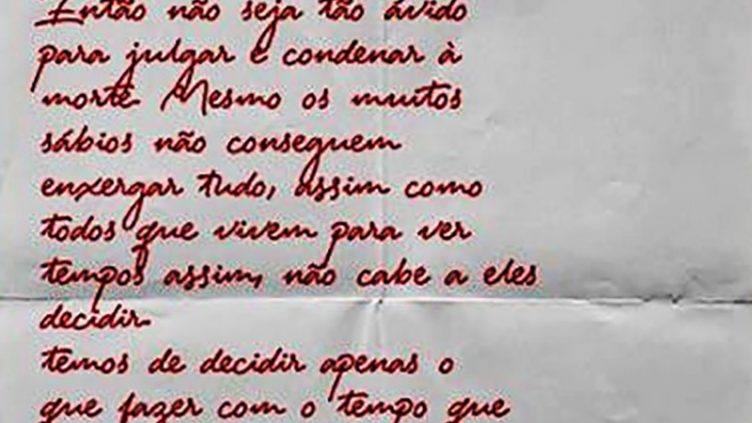 Então não seja tão ávido
para julgar e condenar à
morte. Mesmo os muitos
sábios não conseguem
enxergar tudo, assim como
todos que vivem para ver
tempos assim, não cabe a eles
decidir.
temos de decidir apenas o
que fazer com o tempo que